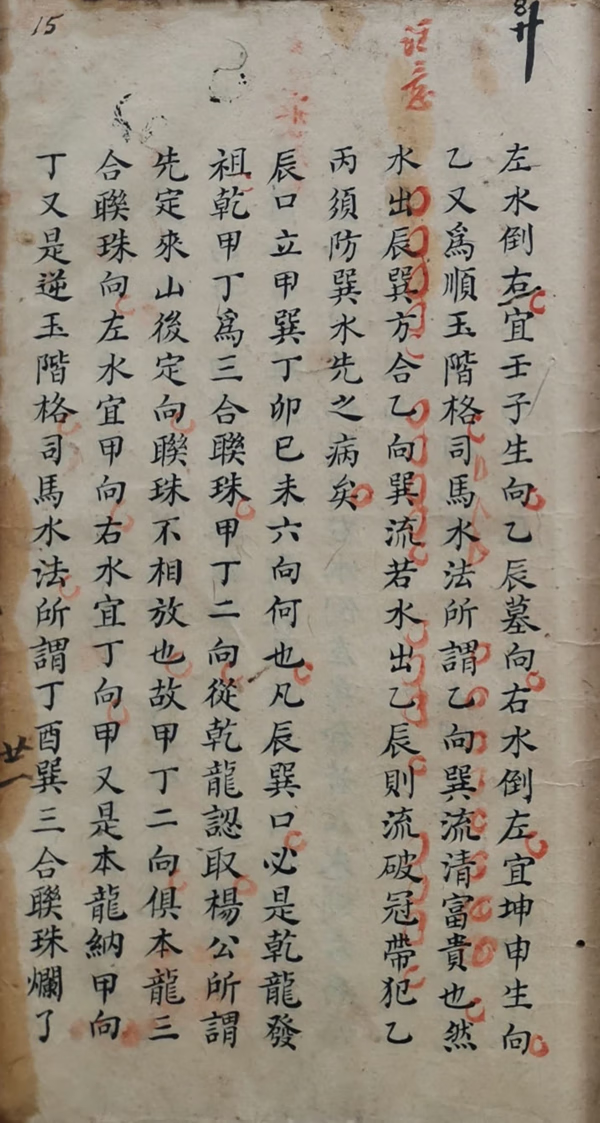 15
注意
左水倒右宜壬子生向乙辰墓向右水倒左宜坤申生向
乙又為順玉階格司馬水法所謂乙向巽流清富貴也然
水出辰巽方合乙向巽流若水出乙辰則流破冠帶犯乙
丙須防巽水先之病矣
辰口立甲巽丁卯巳未六向何也凡辰巽口必是乾龍發
祖乾甲丁為三合聯珠甲丁二向從乾龍認取楊公所謂
先定來山後定向聯珠不相放也故甲丁二向俱本龍三
合聯珠向左水宜甲向右水宜丁向甲又是本龍納甲向
丁又是逆玉階格司馬水法所謂丁酉巽三合聯珠爛了